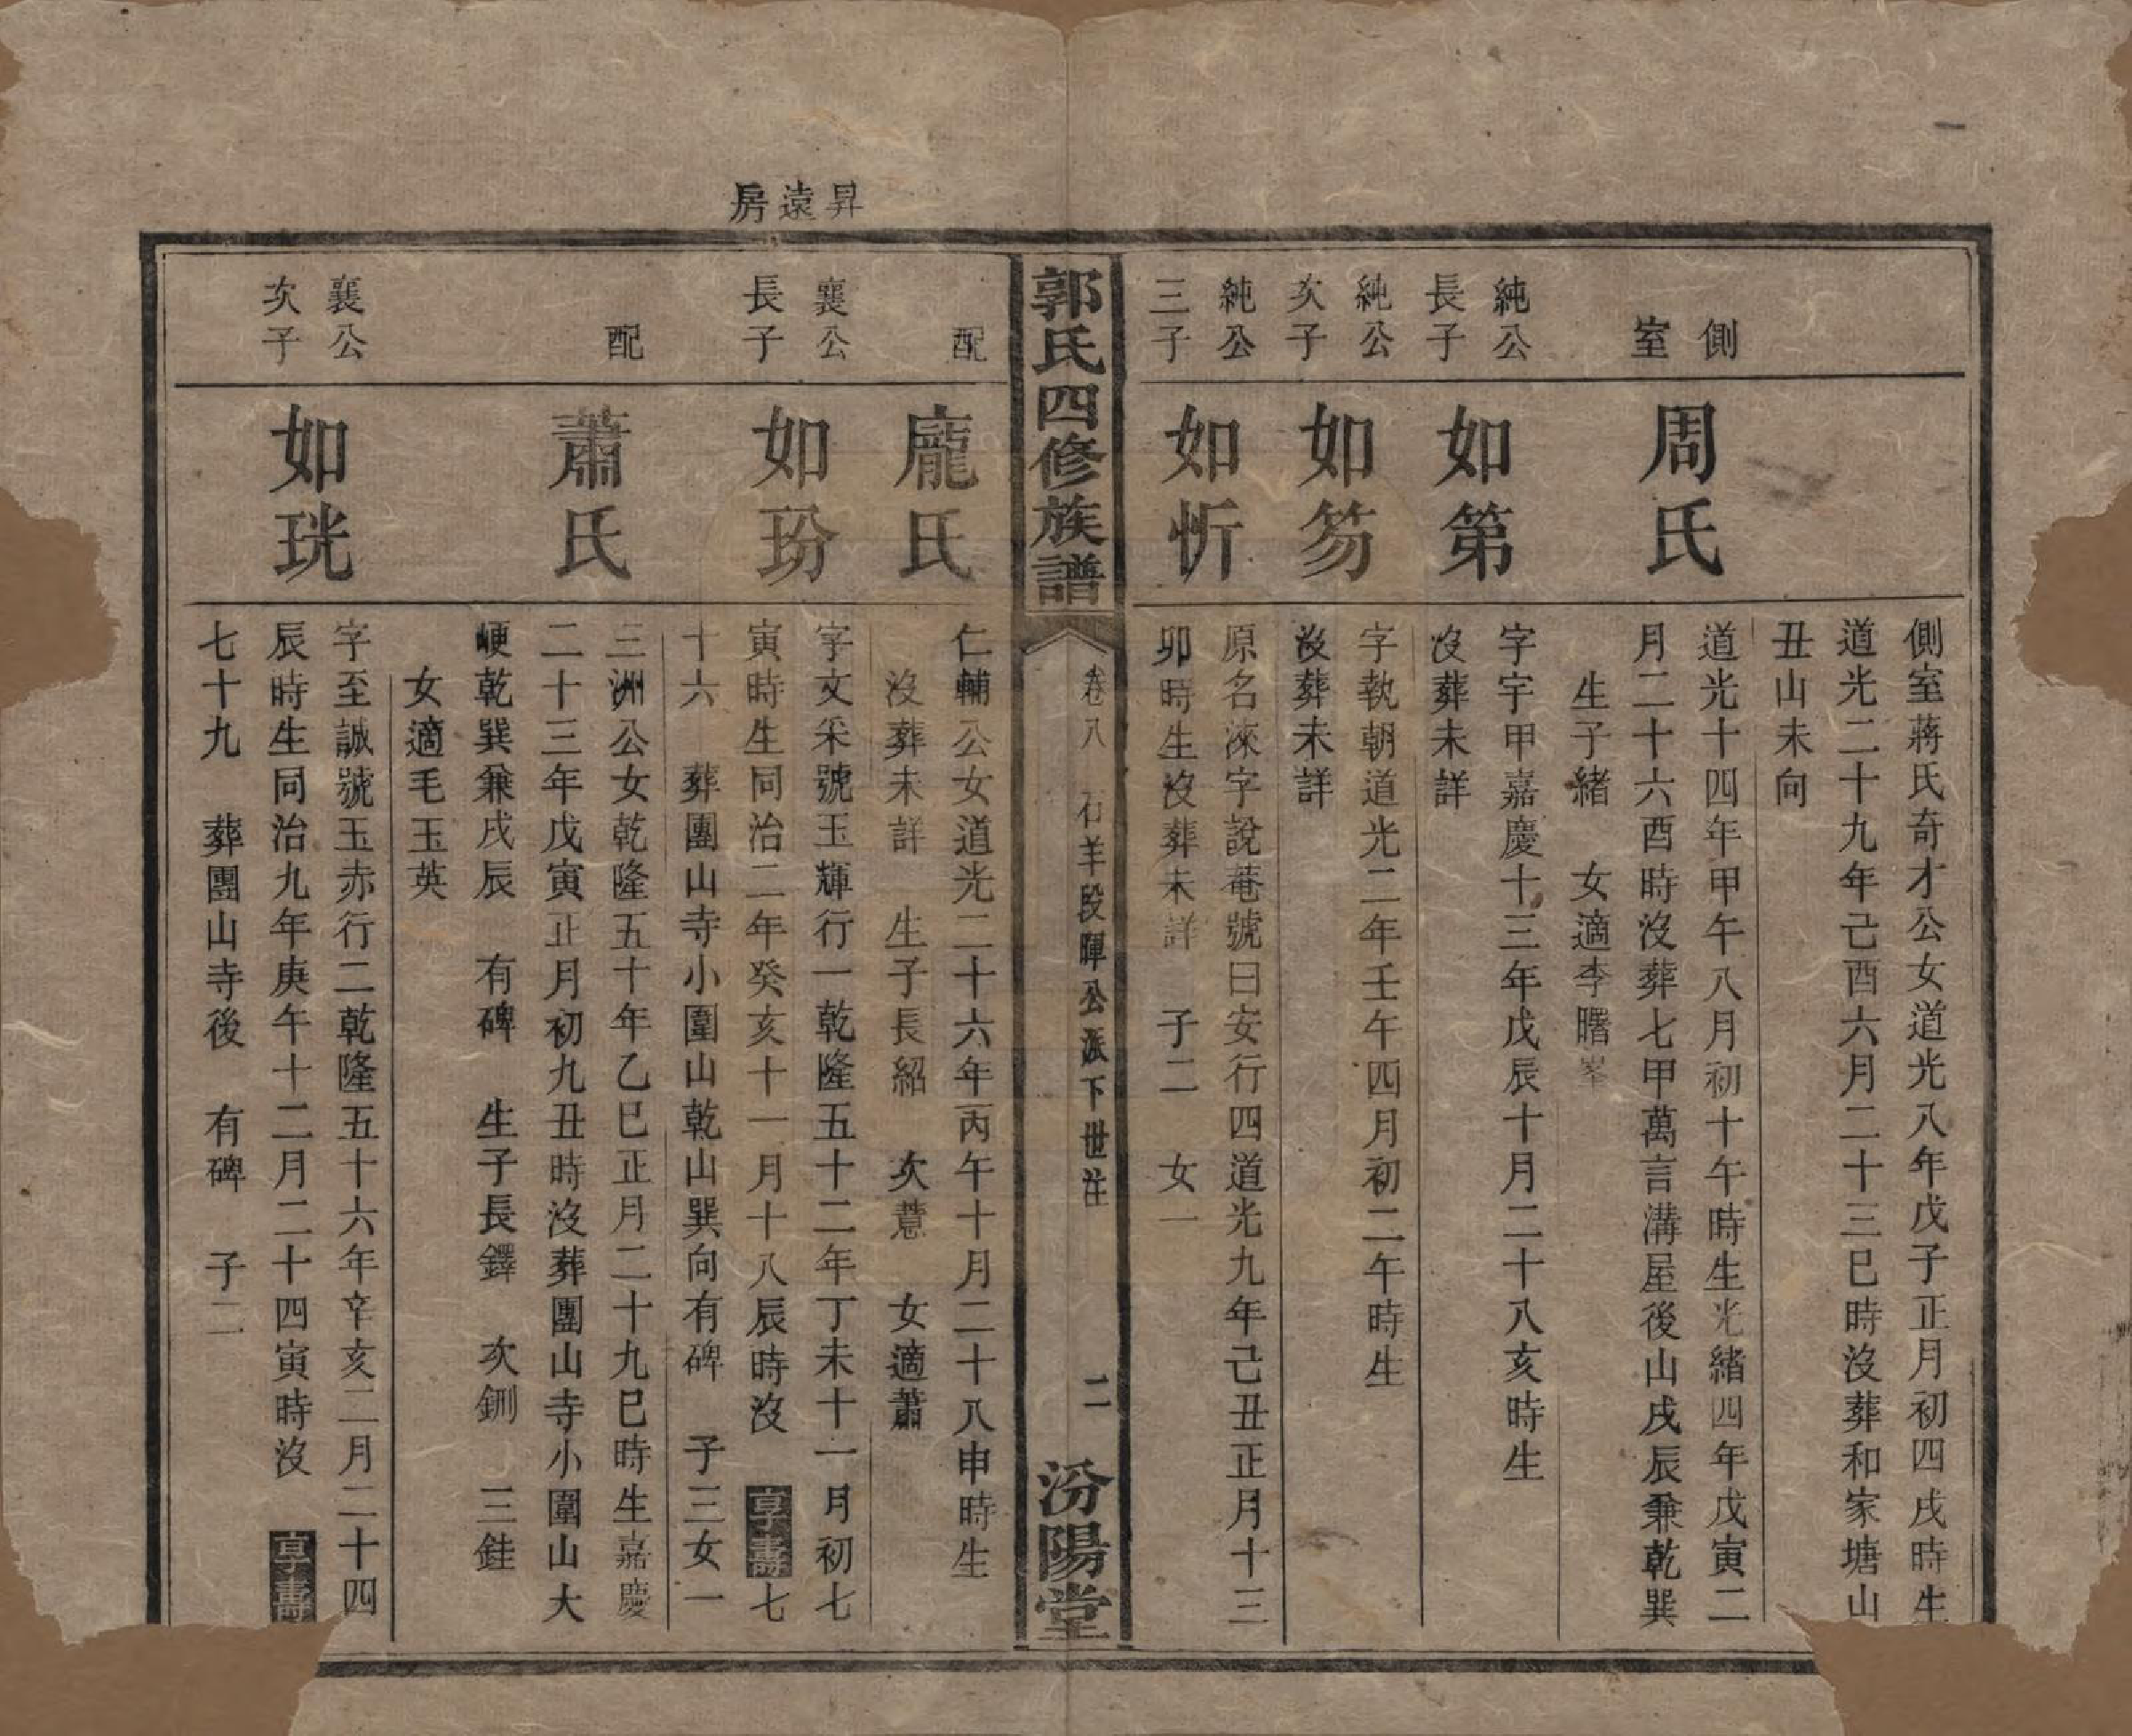 側室蔣氏奇才公女道光八年戊子正月初四戌時生
道光二十九年己酉六月二十三巳時沒葬和家塘山
丑山未向
側室
周氏
道光十四年甲午八月初十午時生光緒四年戊寅二
月二十六酉時沒葬七甲萬言溝屋後山戌辰兼乾巽
生子緒 女適李曙峯
純公長子
如第
字宇甲嘉慶十三年戊辰十月二十八亥時生
沒葬未詳
純公次子
如笏
字執朝道光二年壬午四月初二午時生
沒葬未詳
純公三子
如忻
原名淶字說菴號曰安行四道光九年己丑正月十三
卯時生沒葬未詳 子二 女一
郭氏四修族譜
卷八 石羊段暉公派下世注 二
汾陽堂
昇遠房
配
龐氏
仁輔公女道光二十六年丙午十月二十八申時生
沒葬未詳 生子長紹 次薏 女適蕭
襄公長子
如玢
字文采號玉輝行一乾隆五十二年丁未十一月初七
寅時生同治二年癸亥十一月十八辰時沒 享壽七
十六 葬團山寺小圍山乾山巽向有碑 子三女一
配
蕭氏
三洲公女乾隆五十年乙巳正月二十九巳時生嘉慶
二十三年戊寅正月初九丑時沒葬團山寺小圍山大
㟰乾巽兼戌辰 有碑 生子長鐸 次鉶 三銈
女適毛玉英
襄公次子
如珖
字至誠號玉赤行二乾隆五十六年辛亥二月二十四
辰時生同治九年庚午十二月二十四寅時沒 享壽
七十九 葬團山寺後 有碑 子二